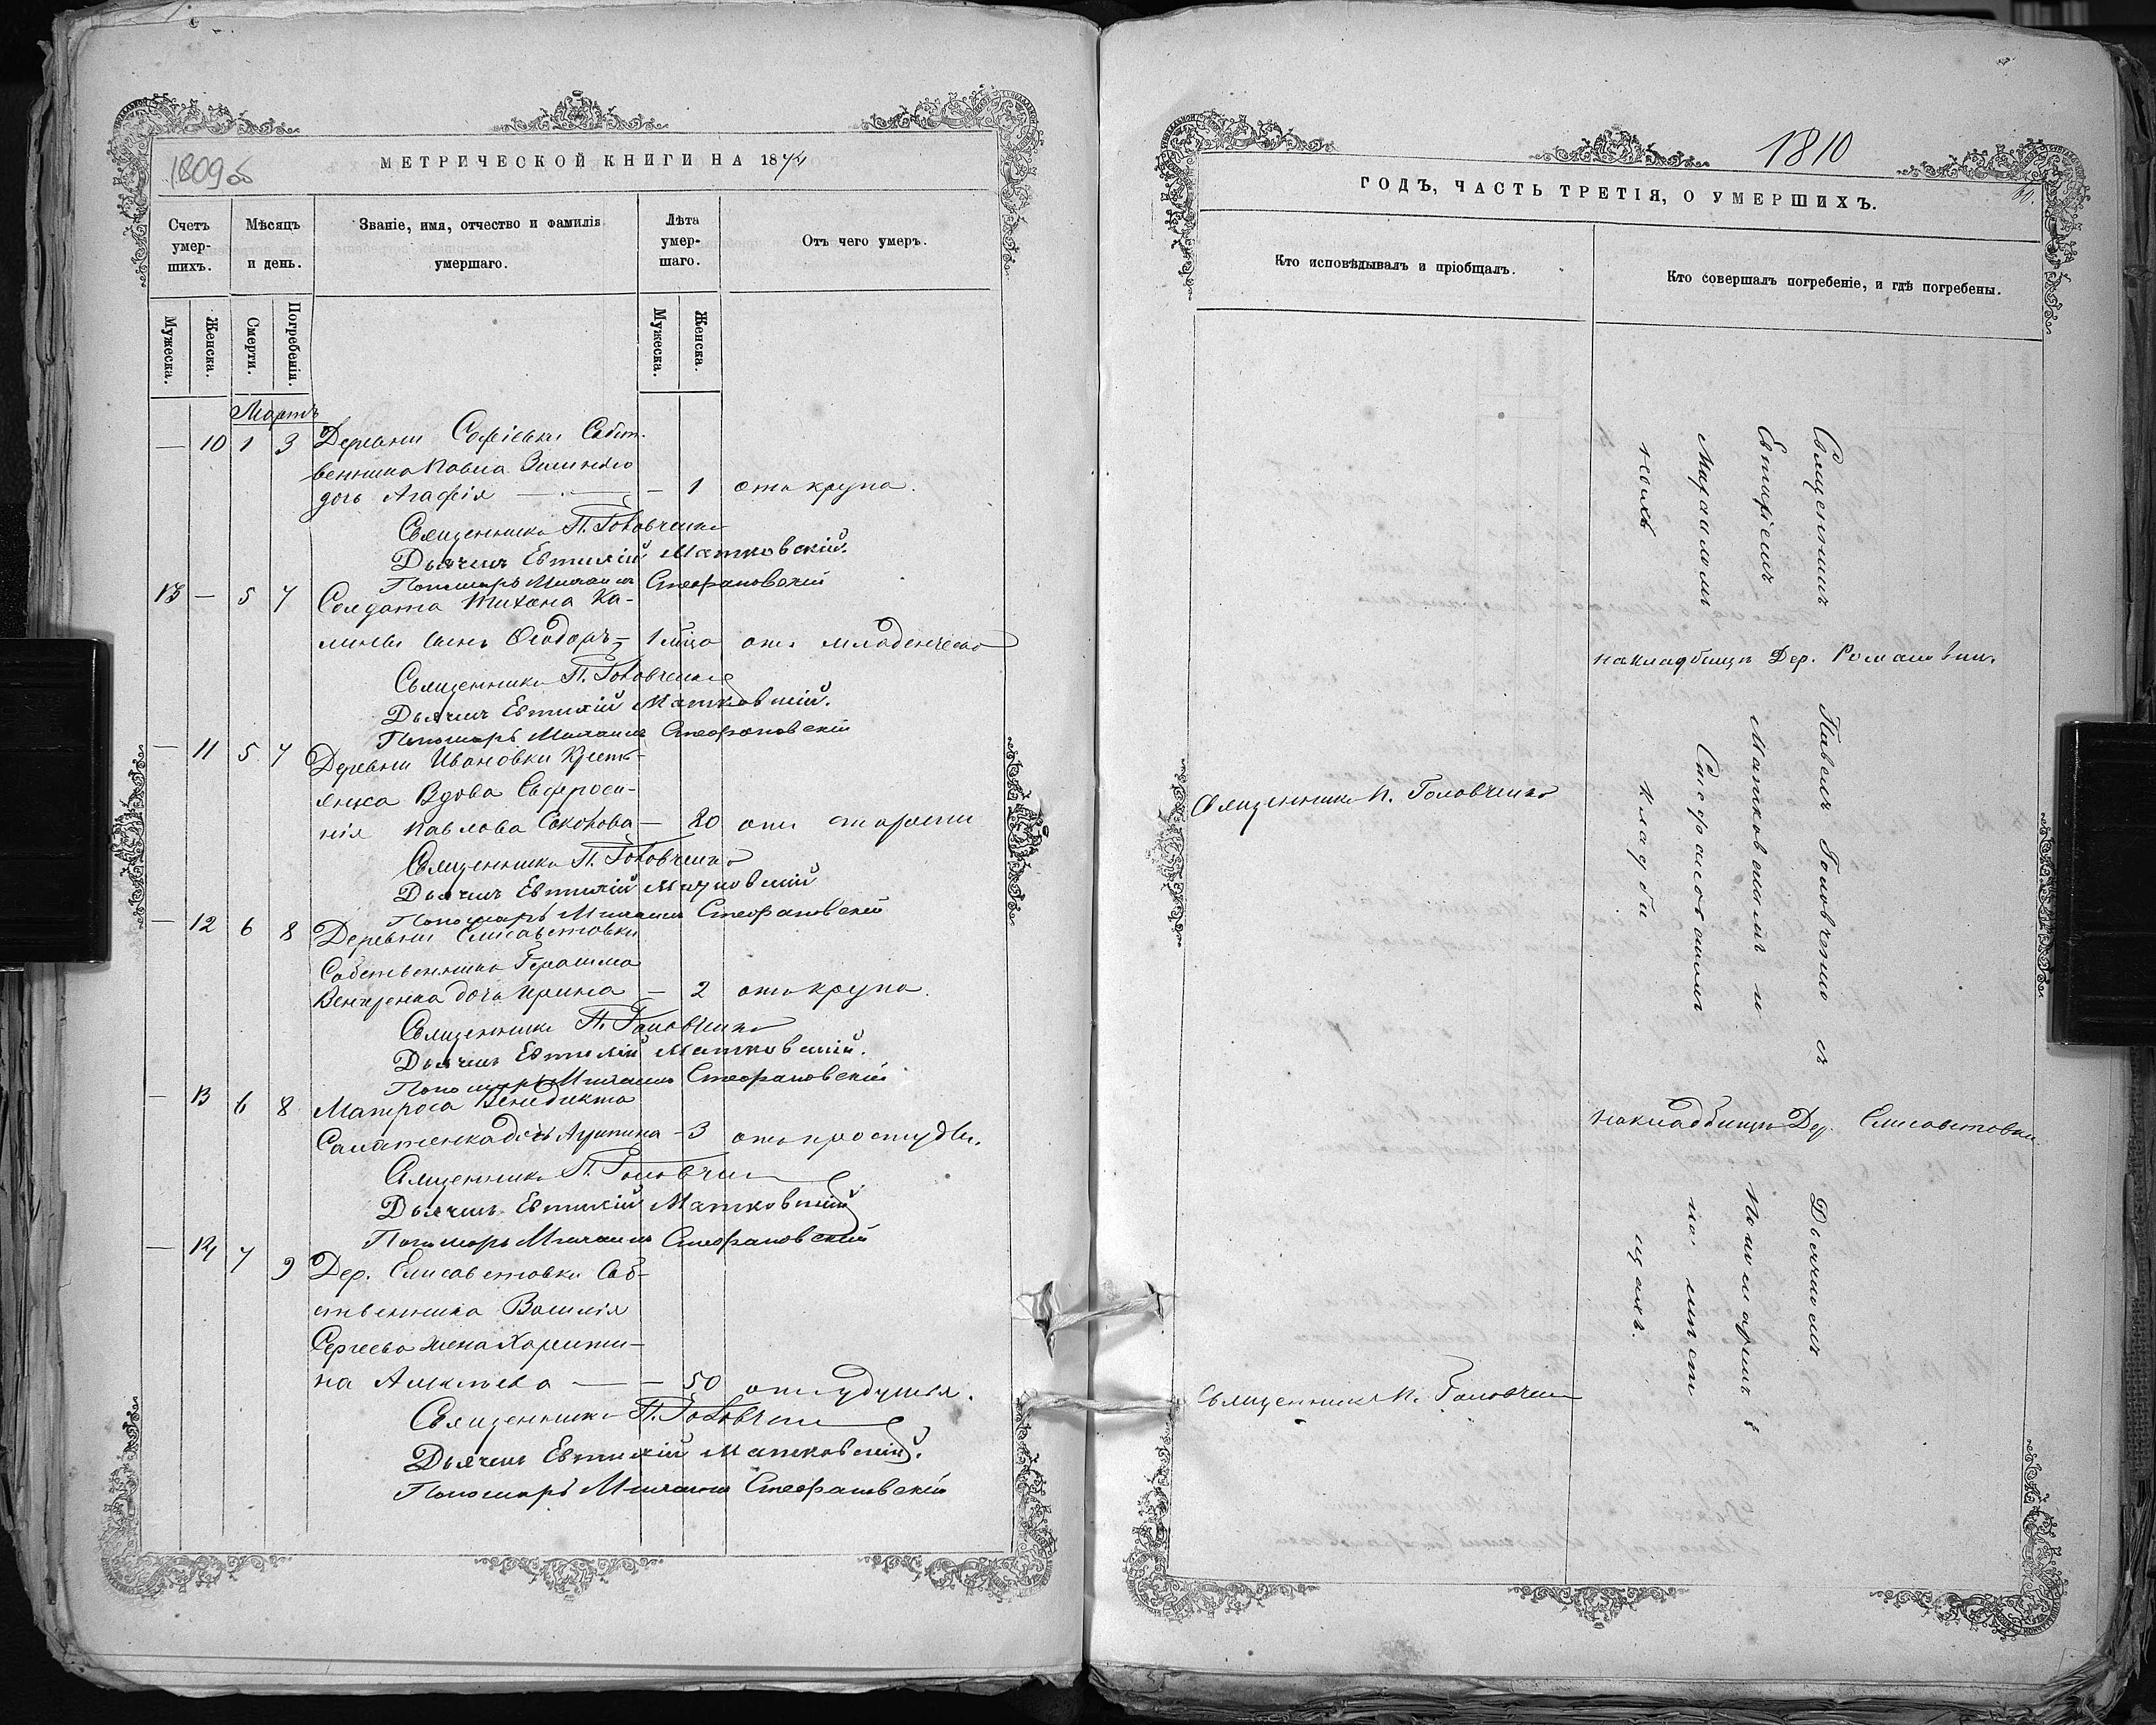 1809 об
МЕТРИЧЕСКОЙ КНИГИ НА 1874
Счетъ умер-шихъ.
Мѣсяцъ и день.
Званіе, имя, отчество и фамилія умершаго.
Лѣта умер-шаго.
Отъ чего умеръ.
Мужеска.
Женска.
Смерти.
Погребенія.
Мужеска.
Женска.
Мартъ
— 10 1 3 Деревни Софіевки Собст-
венника Павла
дочь Агафія — — 1 отъ крупа.
Священникъ П. Головченко
Дьячекъ Евтихій Матковскій.
Пономарь Михаилъ Стефановскій
13 — 5 7 Солдата Тихона Ка-
лины сынъ Ѳеодоръ — 1 мѣсяца отъ младенческой
Священникъ П. Головченко
Дьячекъ Евтихій Матковскій.
Пономарь Михаилъ Стефановскій
— 11 5 7 Деревни Ивановки Кресть-
янка Вдова Евфроси-
нія Павлова — 80 отъ старости
Священникъ П. Головченко
Дьячекъ Евтихій Матковскій
Пономарь Михаилъ Стефановскій
— 12 6 8 Деревни Елисаветовки
Собственника Герасима
дочь Ирина — 2 отъ крупа.
Священникъ П. Головченко
Дьячекъ Евтихій Матковскій.
Пономарь Михаилъ Стефановскій
— 13 6 8 Матроса Венедикта
дочь — 3 отъ простуды.
Священникъ П. Головченко
Дьячекъ Евтихій Матковскій
Пономарь Михаилъ Стефановскій
— 14 7 9 Дер. Елисаветовки Соб-
ственника Василія
Сергеева жена Харити-
на — — 50 отъ удушья.
Священникъ П. Головченко
Дьячекъ Евтихій Матковскій.
Пономарь Михаилъ Стефановскій
1810
60.
ГОДЪ, ЧАСТЬ ТРЕТІЯ, О УМЕРШИХЪ.
Кто исповѣдывалъ и пріобщалъ.
Кто совершалъ погребеніе, и гдѣ погребены.
Священникъ П. Головченко
Священникъ П. Головченко
Священникъ Павелъ Головченко съ Дьячкомъ
Евтихіемъ Матковскимъ и Пономаремъ
Михаиломъ Стефановскимъ на
кладби
на кладбищѣ Дер. Романовки.
на кладбищѣ Дер. Елисаветовки